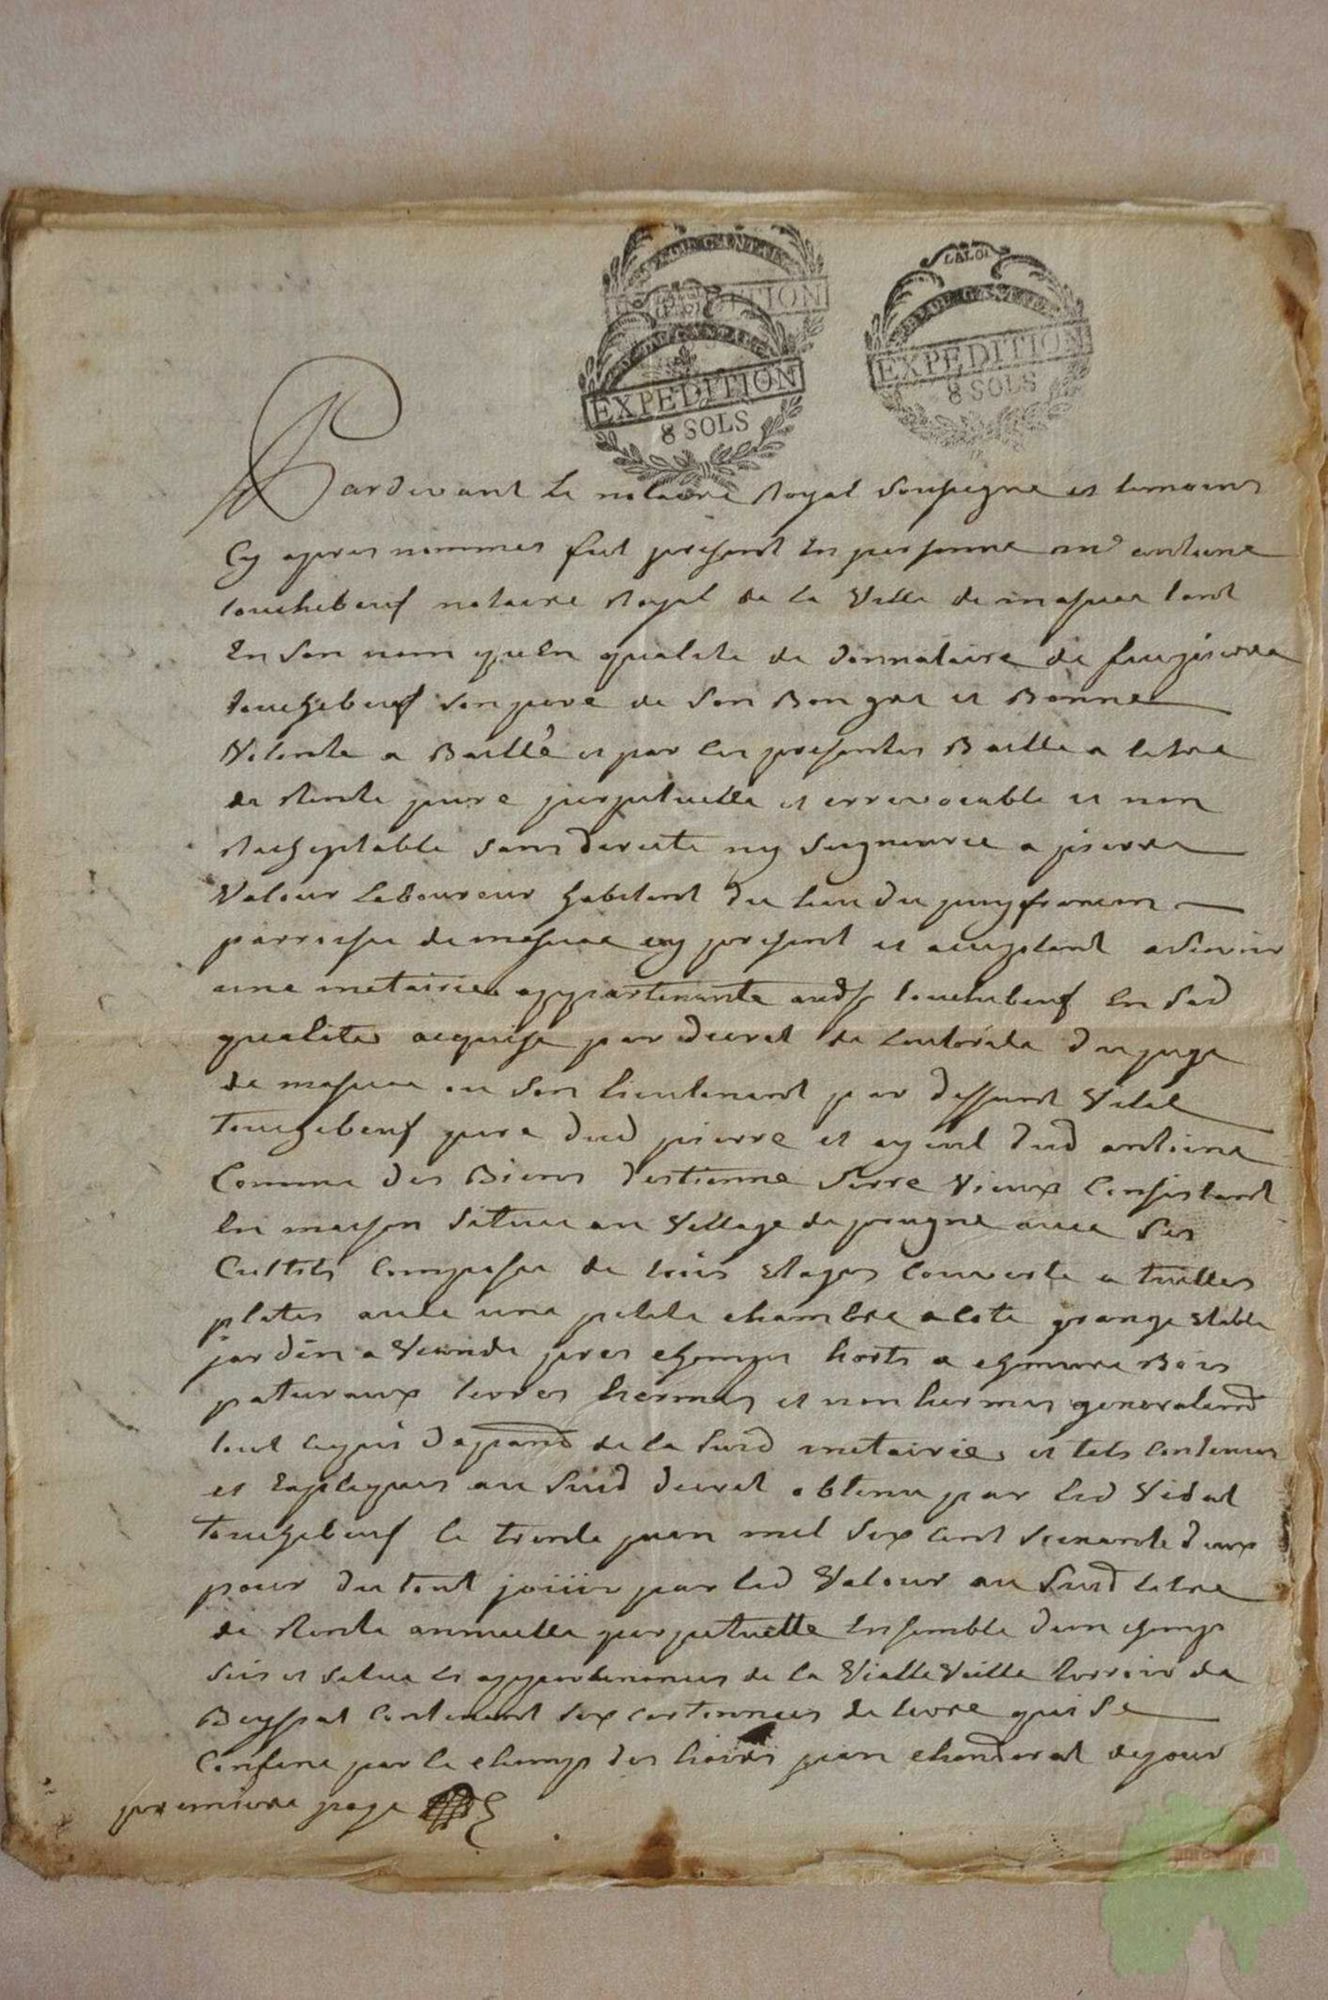 DU CANTAL
EXPEDITION
DU CANTAL
EXPEDITION
8 SOLS
LA LOI
DU CANTAL
EXPEDITION
8 SOLS
Pardevant le notaire Royal soussigne et temoins
Cy apres nommes fut present en personne me antoine
touchebeuf notaire Royal de la Ville de massiac tant
En son nom qu'en qualite de donnataire de feu pierre
touchebeuf son pere de son Bon gre et Bonne
Volonte a Baillé et par les presentes Baille a titre
de Rente pure perpetuelle et irrevocable et non
Racheptable sans directe ny seigneurie a pierre
Valour Laboureur habitant du lieu du
parroisse de massiac cy present et acceptant
une metairie appartenante aud sr touchebeuf en sad
qualite acquise par decret de lautorite du juge
de massiac ou son lieutenant par deffunt Vidal
Touchebeuf pere dud pierre et ayeul dud antoine
Comme des Biens d'estienne Serre Vieux Consistant
En maison situee au Village de avec ses
composee de trois etages couverte a tuilles
plates avec une petite chambre a cote grange etable
jardin a Viande pres champs horts a chanvre Bois
paturaux terres hermes et non hermes generalemt
tout ce qui depand de la susd metairie et tels contenus
et Expliques au susd decret obtenu par led Vidal
Touchebeuf le trente juin mil six cent soixante deux
pour du tout jouiir par led Valour au susd titre
de Rente annuelle perpetuelle Ensemble d'un champ
sis et situe es appartenances de la Vialle Veille terroir de
contenant six cartonnees de terre qui se
Confine par le champ des hoirs jean de jour
premiere page